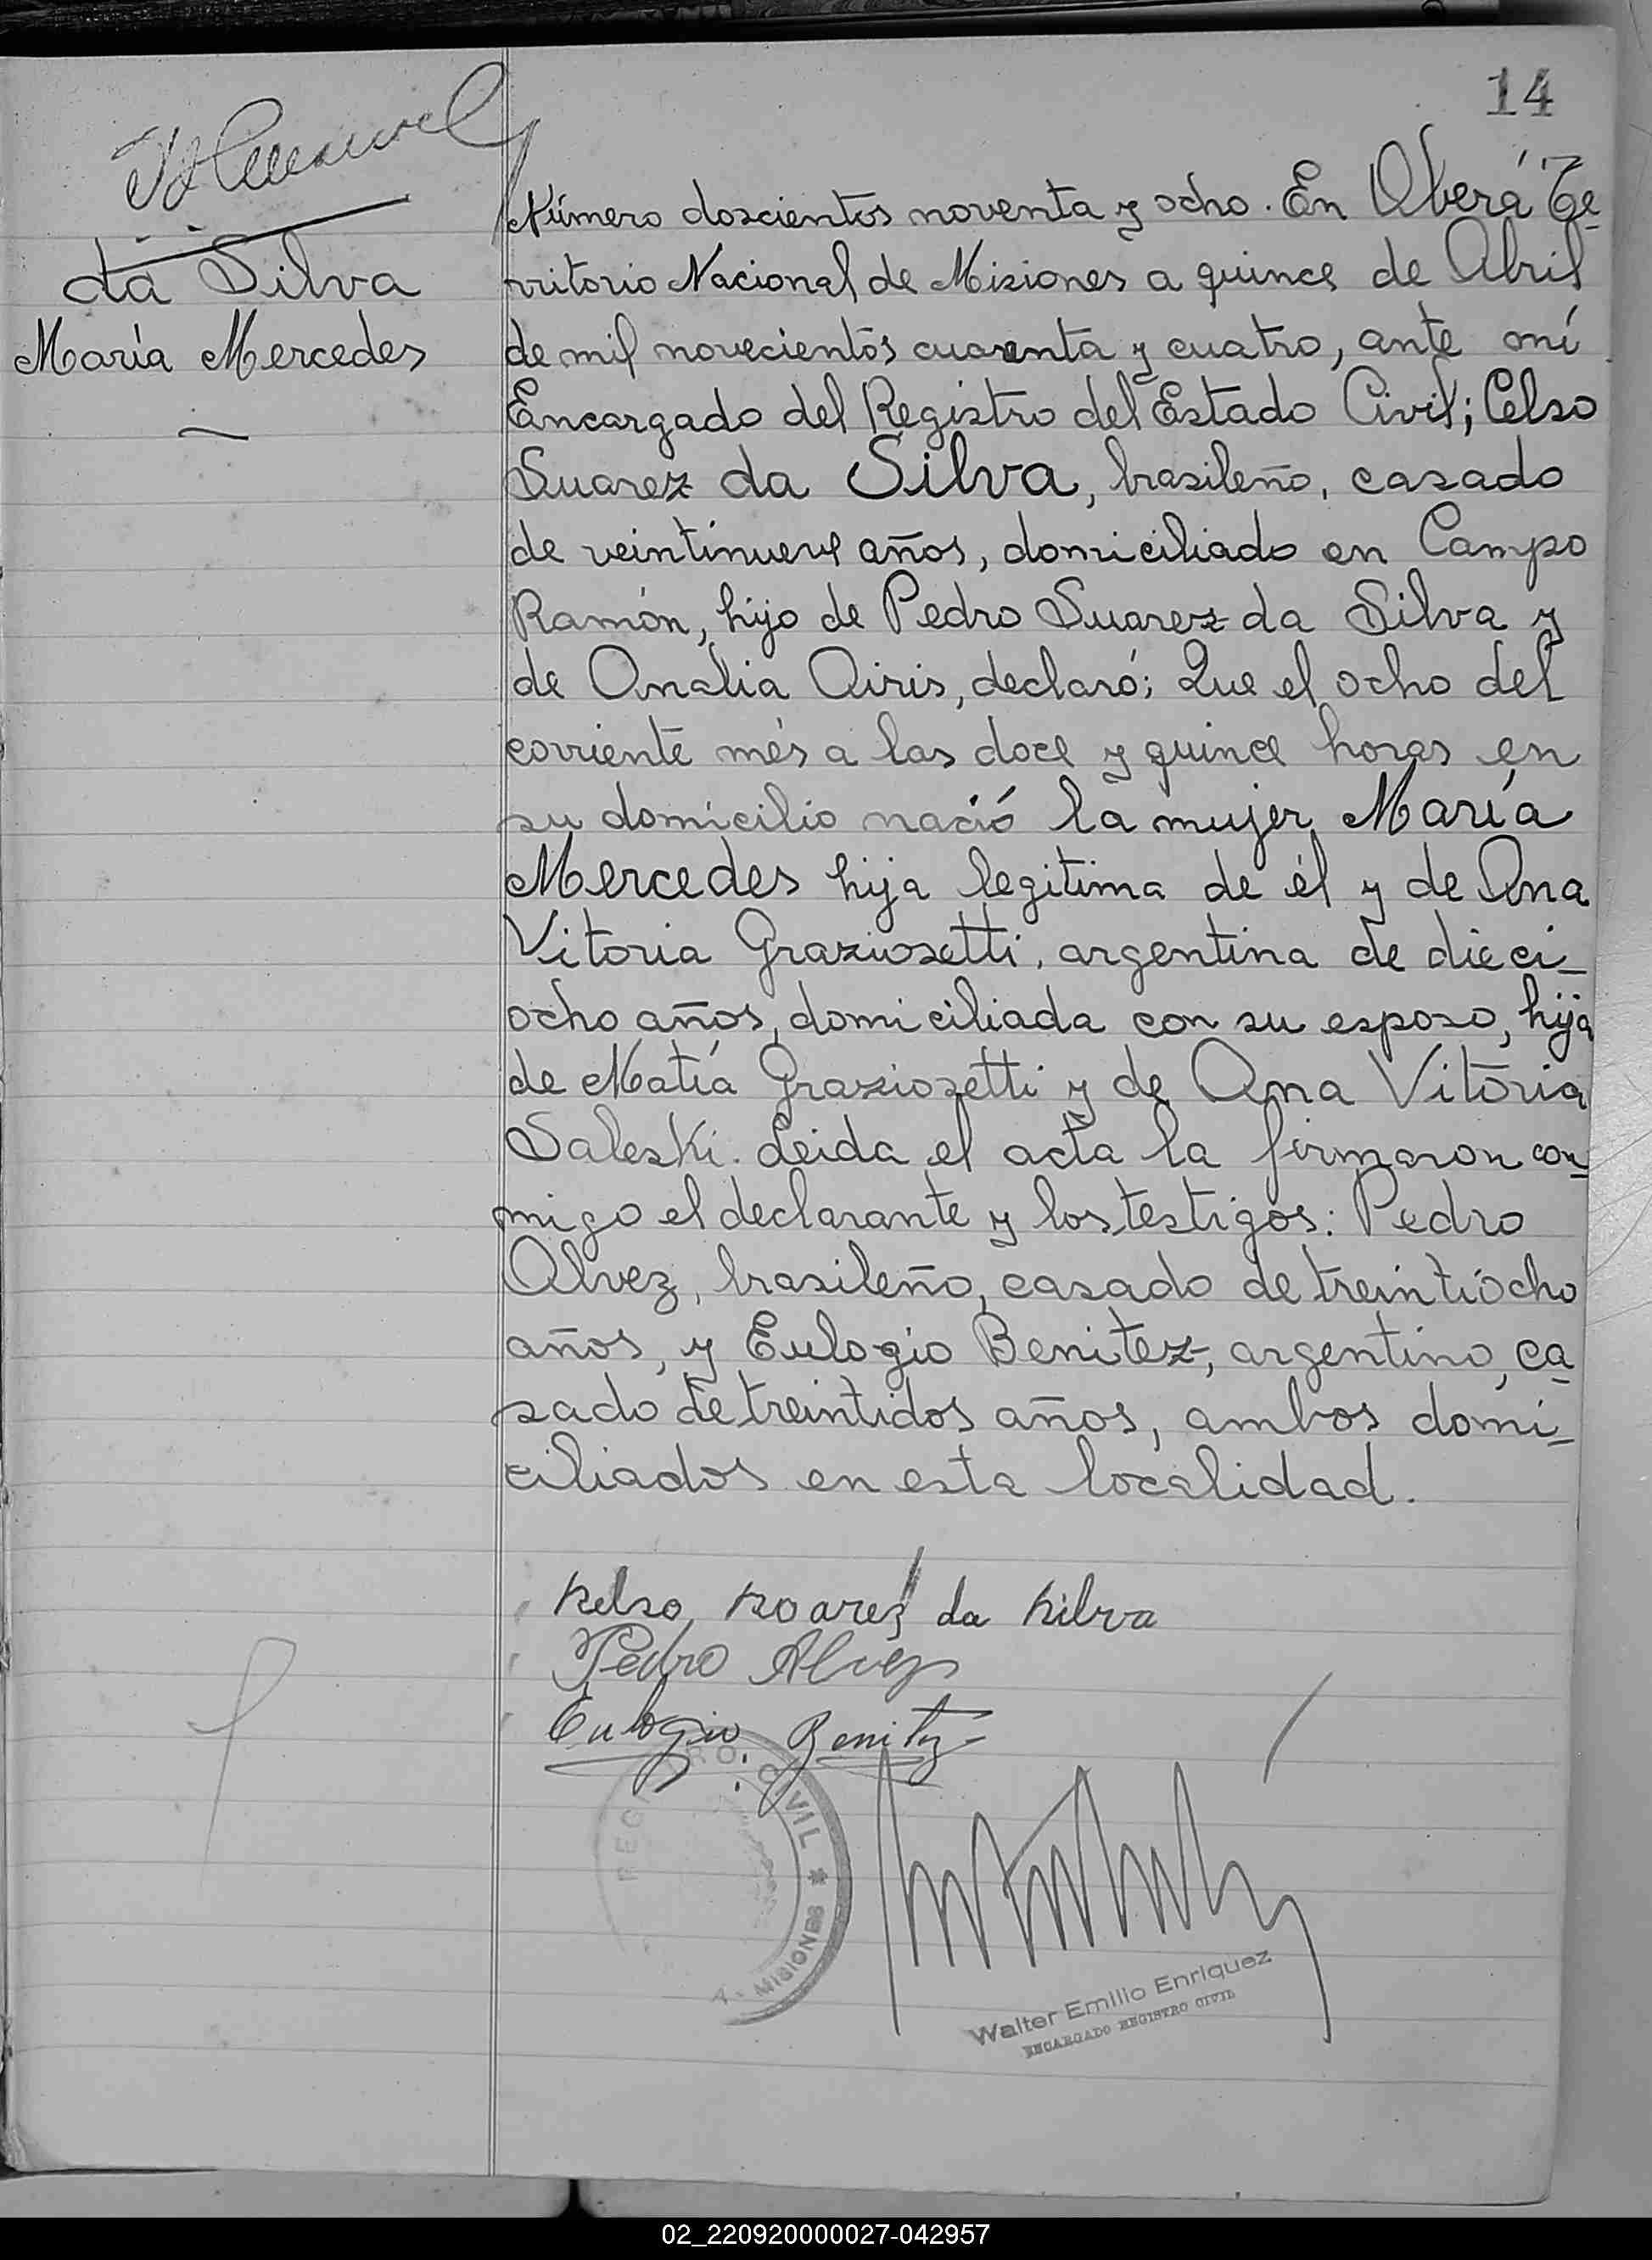 14
da Silva
María Mercedes
Número doscientos noventa y ocho. En Oberá Te-
rritorio Nacional de Misiones a quince de Abril
de mil novecientos cuarenta y cuatro, ante mí
Encargado del Registro del Estado Civil; Celso
Suarez da Silva, brasileño, casado
de veintinueve años, domiciliado en Campo
Ramón, hijo de Pedro Suarez da Silva y
de Analia Airis, declaró: Que el ocho del
corriente més a las doce y quince horas en
su domicilio nació la mujer María
Mercedes hija legitima de él y de Ana
Vitoria Graziosetti, argentina de dieci-
ocho años, domiciliada con su esposo, hija
de Matía Graziosetti y de Ana Vitoria
Saleski. Leida el acta la firmaron con-
migo el declarante y los testigos: Pedro
Alvez, brasileño, casado de treintiocho
años, y Eulogio Benitez, argentino, ca-
sado de treintidos años, ambos domi-
ciliados en esta localidad.
Selso Soarez da Silva
Pedro Alvez
Eulogio Benitez
REGISTRO CIVIL * MISIONES
Walter Emilio Enriquez
ENCARGADO REGISTRO CIVIL
02_220920000027-042957